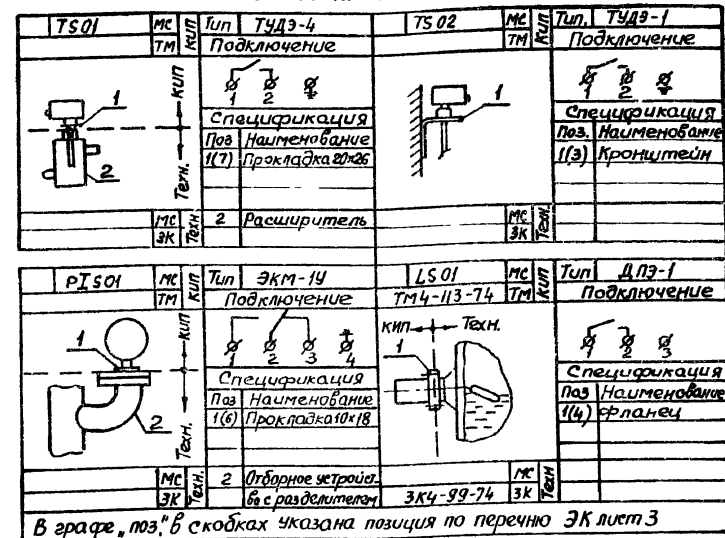 TS01 МС КИП Тип ТУДЭ-4
ТМ Подключение
1 2
Спецификация
Поз Наименование
1(7) Прокладка 20×26
1
2
КИП
Техн.
МС Техн 2 Расширитель
ЗК
TS02 МС КИП Тип. ТУДЭ-1
ТМ Подключение
1 2
Спецификация
Поз. Наименование
1(3) Кронштейн
1
МС Техн.
ЗК
PIS01 МС КИП Тип ЭКМ-1У
ТМ Подключение
1 2 3 4
Спецификация
Поз Наименование
1(6) Прокладка 10×18
1
2
КИП
Техн.
МС Техн. 2 Отборное устройст
ЗК во с разделителем
LS01 МС КИП Тип ДПЭ-1
ТМ4-113-74 ТМ Подключение
КИП Техн.
1
1 2 3
Спецификация
Поз Наименование
1(4) Фланец
МС Техн
ЗК4-99-74 ЗК
В графе „поз." в скобках указана позиция по перечню ЭК лист 3